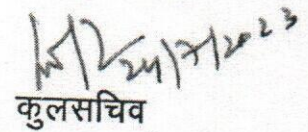 24/7/2023
कुलसचिव